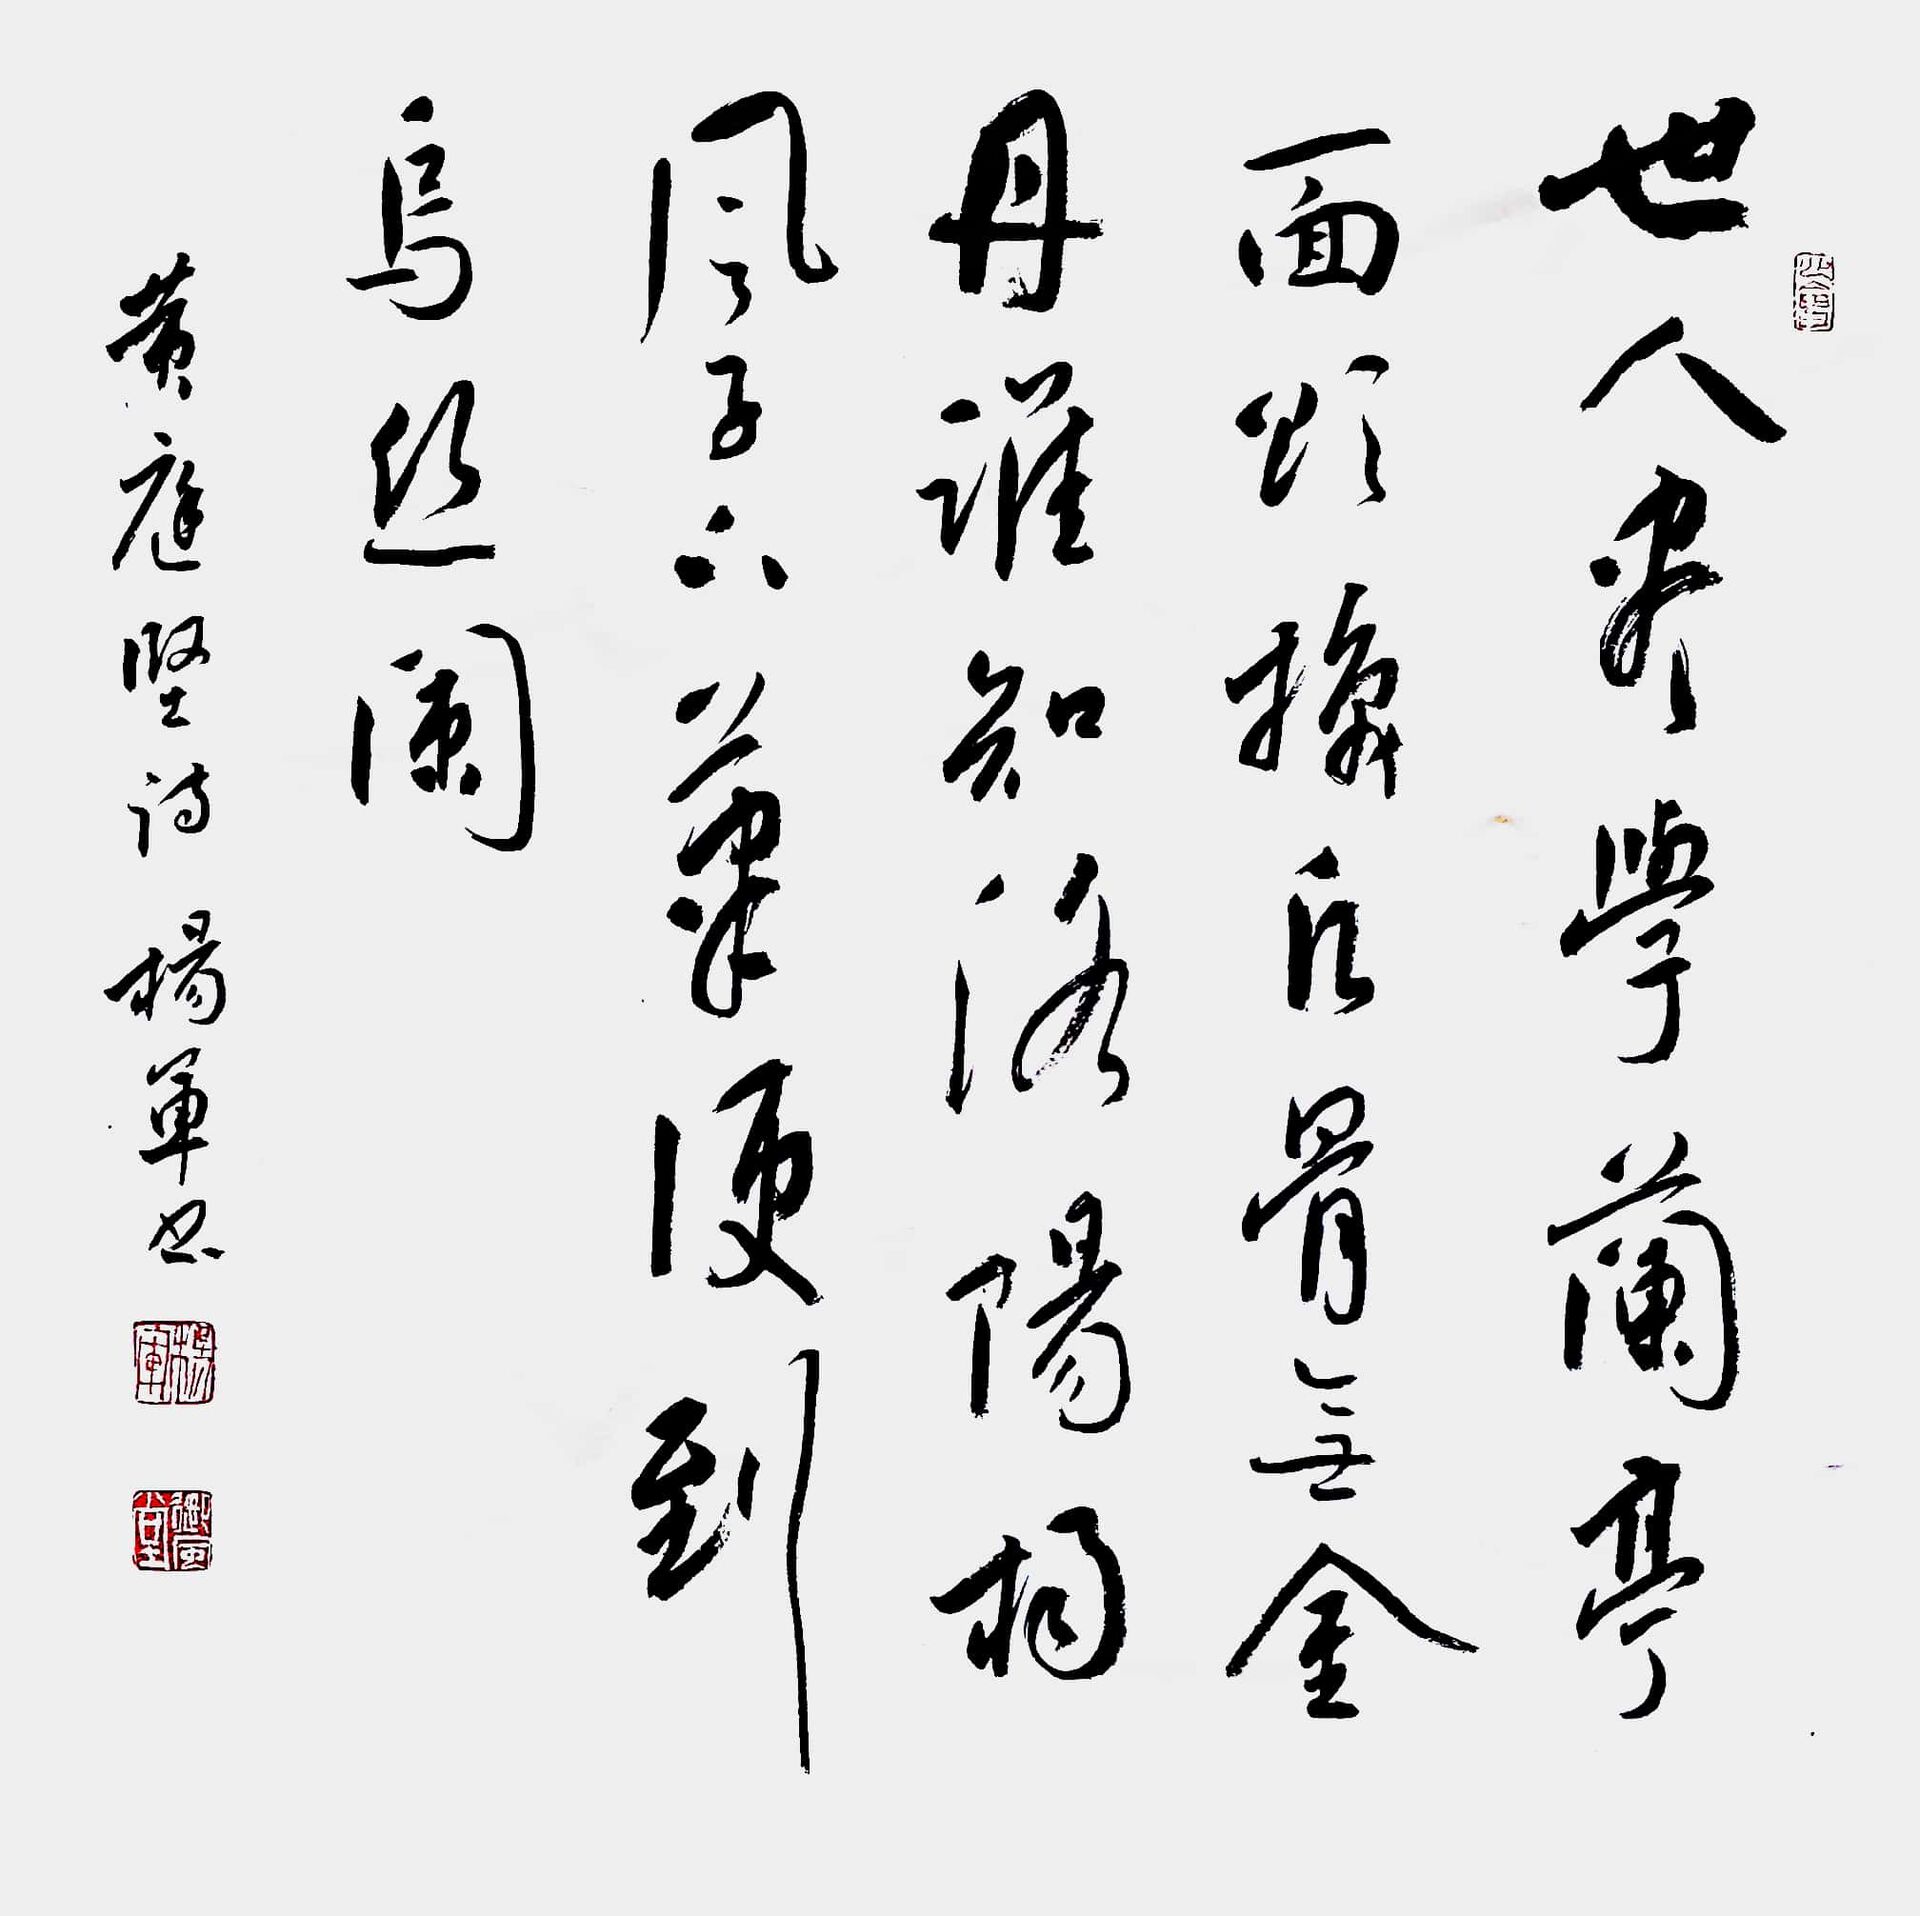 世人盡學蘭亭
面欲換凡骨無金
丹誰知洛陽楊
風子下筆便到
烏絲闌
黄庭堅詩 楊軍书
楊軍